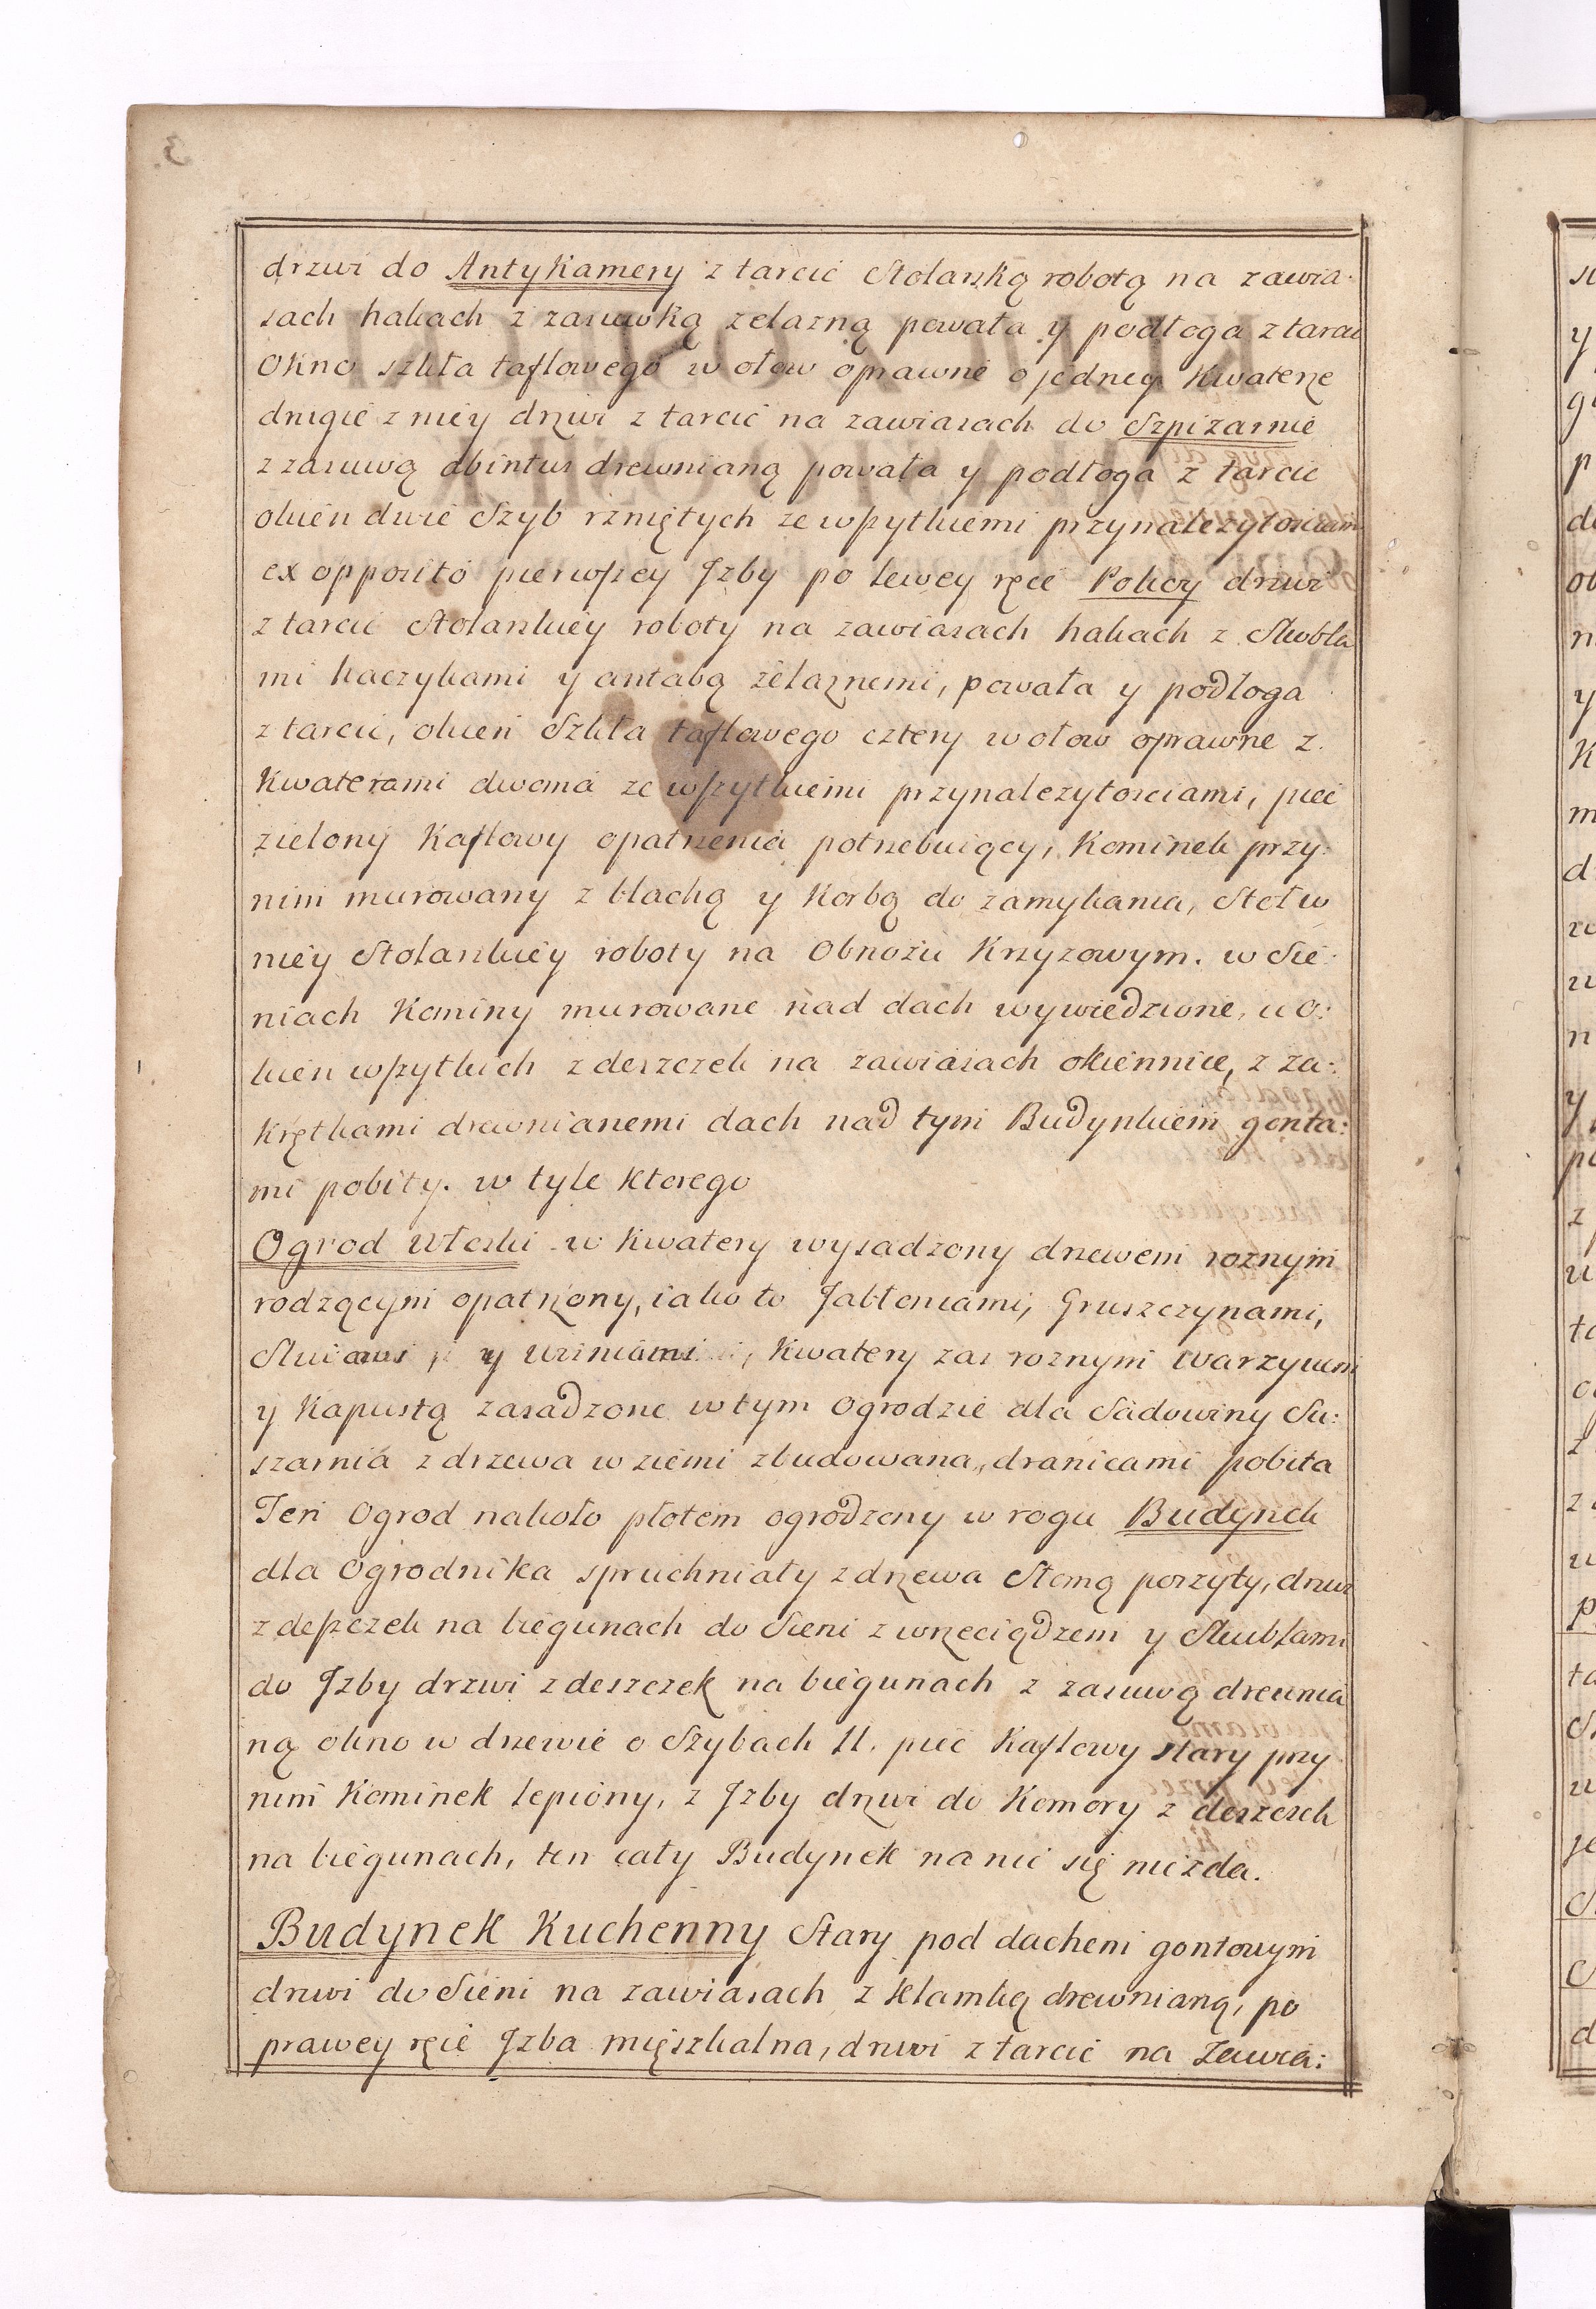 drzwi do Antykamery z tarcic Stolarską robotą na zawia-
sach hakach z zasuwką zelazną powała y podłoga z tarcic
Okno szkła taflowego w ołow oprawne o jedney Kwaterze
drugie z niey drzwi z tarcic na zawiasach do Szpizarnie
z zasuwą abintus drewnianą powała y podłoga z tarcic
okien dwie Szyb rzniętych ze wszytkiemi przynalezytosciami
ex opposito pierwszey Jzby po lewey ręce Pokoy drzwi
z tarcic Stolarskiey roboty na zawiasach hakach z Skobla
mi haczykami y antabą żelaznemi, powała y podłoga
z tarcic, okien Szkła taflowego cztery w ołow oprawne z.
Kwaterami dwoma ze wszytkiemi przynalezytosciami, piec
zielony Kaflowy opatrzenia potrzebuiący, Kominek przy:
nim murowany z blachą y Korbą do zamykania, Stoł w
niey Stolarskiey roboty na Obnożu Krzyzowym. w Sie:
niach Kominy murowane nad dach wywiedzione, u o:
kien wszytkich z deszczek na zawiasach okiennice, z za:
krętkami drewnianemi dach nad tym Budynkiem gonta:
mi pobity. w tyle ktorego
Ogrod Włoski w Kwatery wysadzony drzewem roznym
rodzącym opatrzony, iako to Jabłoniami, Gruszczynami,
y Wisniami, Kwatery zas roznym warzywem
y Kapustą zasadzone w tym Ogrodzie dla Sadowiny Su:
szarnia z drzewa w ziemi zbudowana, dranicami pobita
Ten Ogrod nakoło płotem ogrodzony w rogu Budynek
dla Ogrodnika spruchniały z drzewa Słomą poszyty, drzwi
z deszczek na biegunach do Sieni z wrzeciądzem y Skoblami
do Jzby drzwi z deszczek na biegunach z zasuwą drewnia
ną okno w drzewie o Szybach 11. piec Kaflowy stary przy
nim Kominek lepiony, z Jzby drzwi do Komory z deszczek
na biegunach, ten cały Budynek na nic się niezda.
Budynek Kuchenny Stary pod dachem gontowym
drzwi do Sieni na zawiasach z klamką drewnianą, po
prawey ręce Jzba mięszkalna, drzwi z tarcic na Zawia:
3